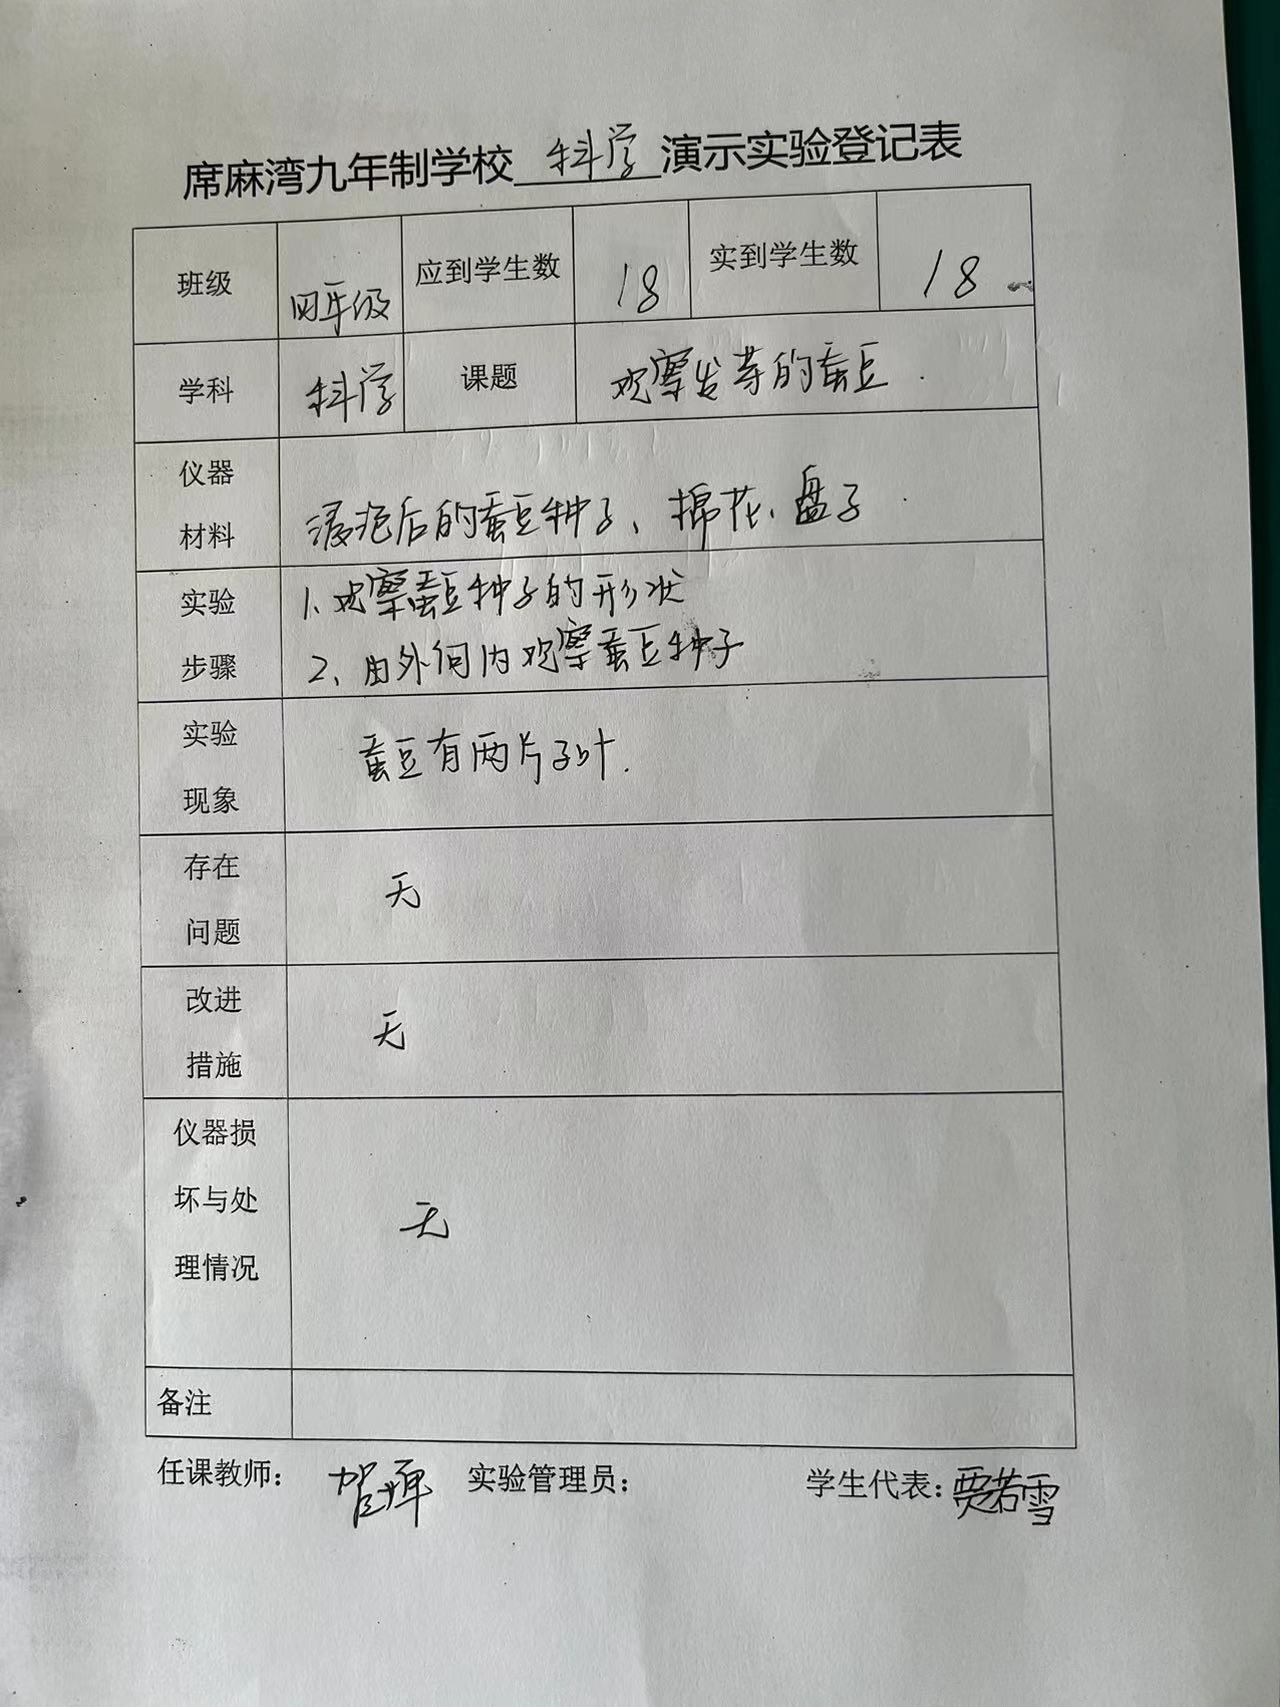 席麻湾九年制学校 科学 演示实验登记表
班级 四年级 应到学生数 18 实到学生数 18
学科 科学 课题 观察发芽的蚕豆.
仪器
材料
浸泡后的蚕豆种子、棉花、盘子.
实验
步骤
1、观察蚕豆种子的形状
2、由外向内观察蚕豆种子
实验
现象
蚕豆有两片子叶.
存在
问题
无
改进
措施
无
仪器损
坏与处
理情况
无
备注
任课教师： 贺 实验管理员： 学生代表：贾若雪